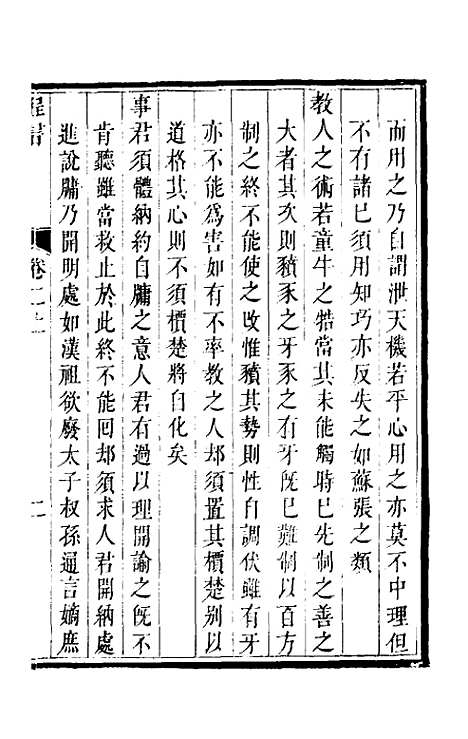 而用之乃自謂泄天機若平心用之亦莫不中理但
不有諸已須用知巧亦反失之如蘇張之類
教人之術若童牛之牿當其未能觸時已先制之善之
大者其次則豶豕之牙豕之有牙旣已難制以百方
制之終不能使之改惟豶其勢則性自調伏雖有牙
亦不能爲害如有不率教之人却須置其檟楚别以
道格其心則不須檟楚將自化矣
事君須體納約自牖之意人君有過以理開諭之旣不
肯聽雖當救止於此終不能回却須求人君開納處
進說牖乃開明處如漢祖欲廢太子叔孫通言嫡庶
程書 卷二上 二